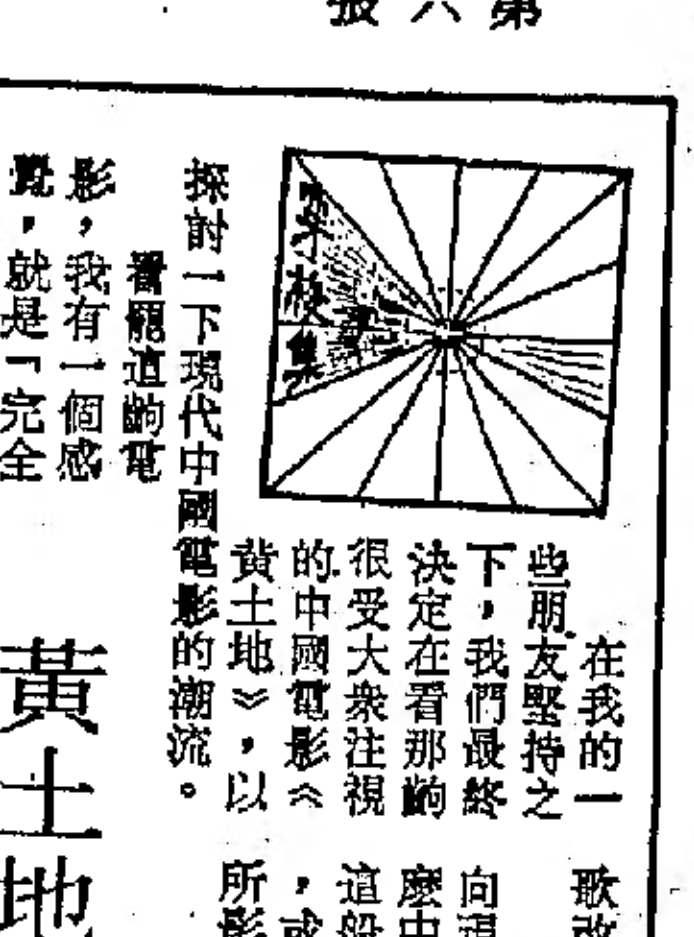 第六張
在我的一
些朋友堅持之
下，我們最終
決定在看那齣
很受大衆注視
的中國電影《
黃土地》，以
探討一下現代中國電影的潮流。
看罷這齣電
影，我有一個感
覺，就是「完全
黃土地
歌
向現
麽中
這般
，或
所影